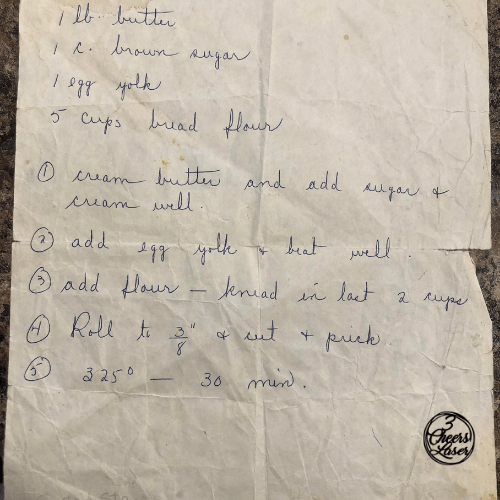 1 lb. butter
1 c. brown sugar
1 egg yolk
5 cups bread flour
① cream butter and add sugar &
cream well.
② add egg yolk & beat well.
③ add flour — knead in last 2 cups
④ Roll to 3/8" & cut & prick.
⑤ 325° — 30 min.
3
Cheers
Laser